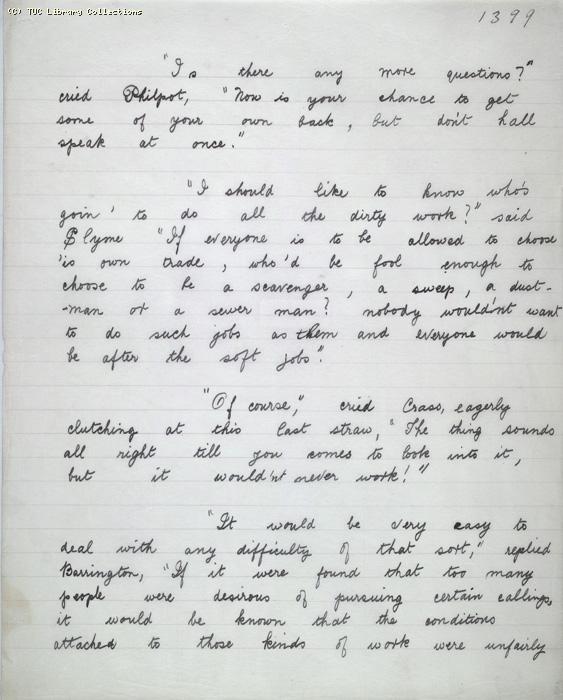 (C) TUC Library Collections
1399
"Is there any more questions?"
cried Philpot, "Now is your chance to get
some of your own back, but don't hall
speak at once."
"I should like to know who's
goin' to do all the dirty work?" said
Slyme "If everyone is to be allowed to choose
'is own trade, who'd be fool enough to
choose to be a scavenger, a sweep, a dust-
-man or a sewer man? nobody wouldn't want
to do such jobs as them and everyone would
be after the soft jobs".
"Of course," cried Crass, eagerly
clutching at this last straw, "The thing sounds
all right till you comes to look into it,
but it would'nt never work!"
"It would be very easy to
deal with any difficulty of that sort," replied
Barrington, "If it were found that too many
people were desirous of pursuing certain callings,
it would be known that the conditions
attached to those kinds of work were unfairly